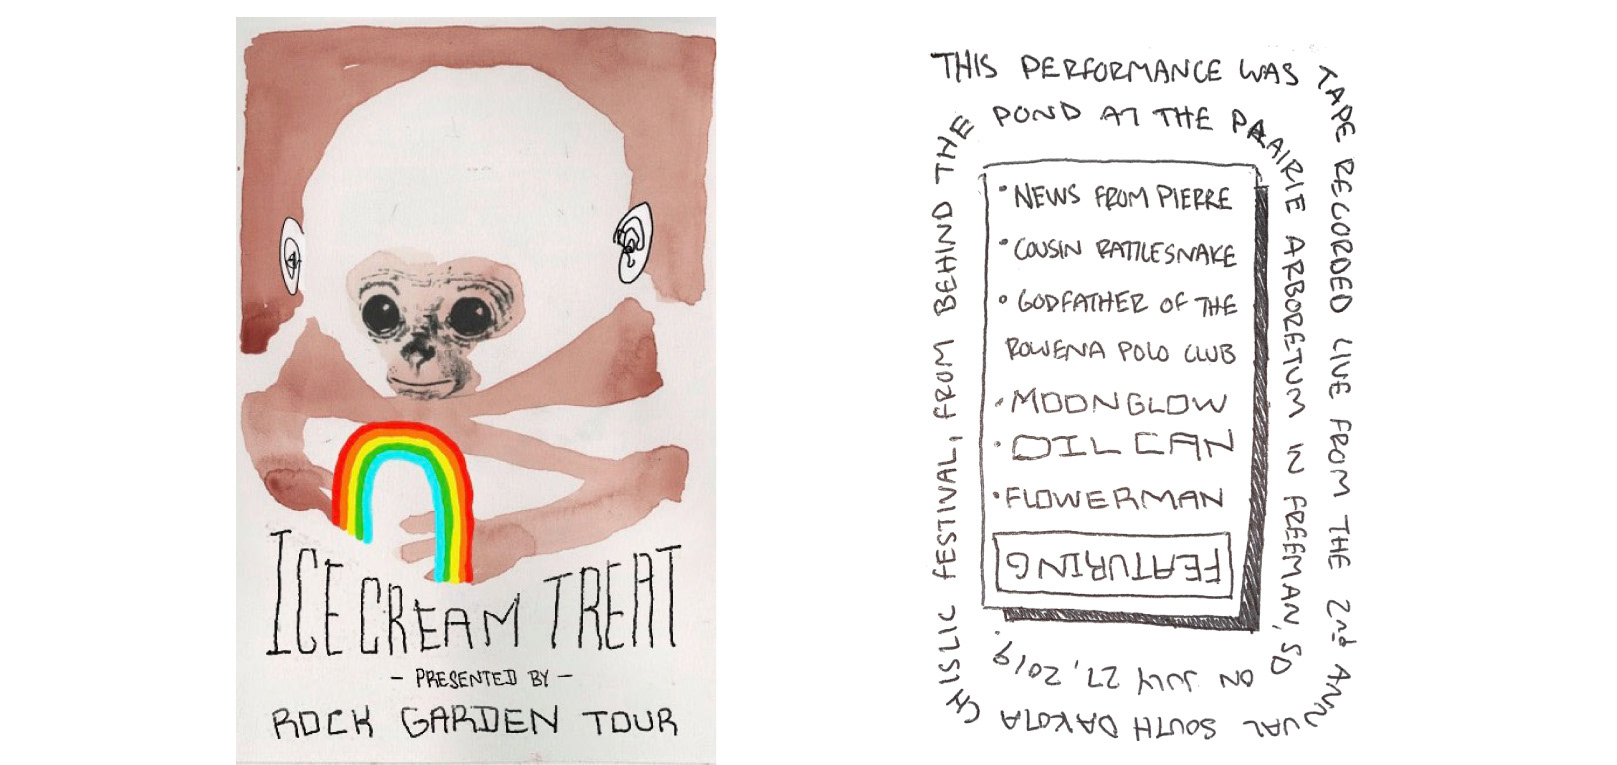 ICE CREAM TREAT
- PRESENTED BY -
ROCK GARDEN TOUR
THIS PERFORMANCE WAS TAPE RECORDED LIVE FROM THE 2nd ANNUAL SOUTH DAKOTA CHISLIC FESTIVAL, FROM BEHIND THE POND AT THE PRAIRIE ARBORETUM IN FREEMAN, SD ON JULY 27, 2019.
• NEWS FROM PIERRE
• COUSIN RATTLESNAKE
• GODFATHER OF THE
ROWENA POLO CLUB
• MOONGLOW
• OIL CAN
• FLOWERMAN
FEATURING